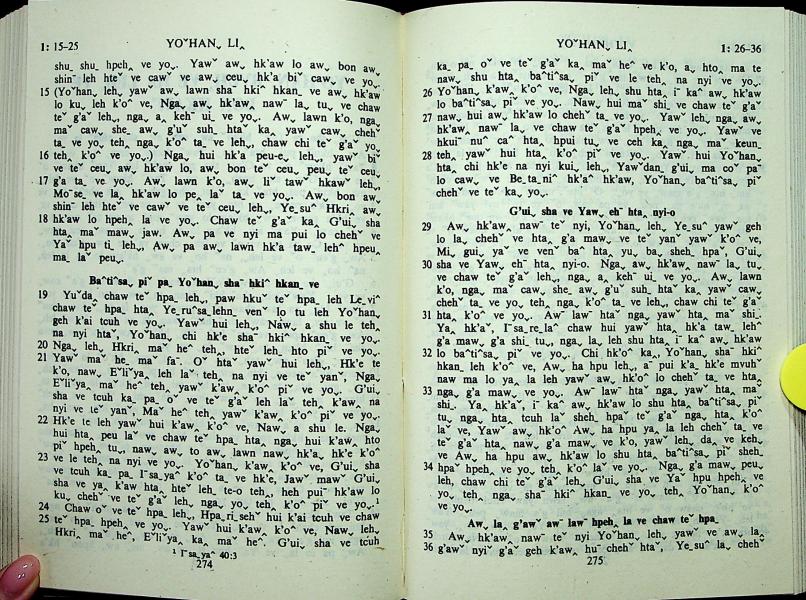 1: 15-25 YOˇHAN˯ LI˰
shu˯ shu˯ hpeh˰ ve yo˯. Yawˇ aw˯ hk'aw lo aw˯ bon aw˯
shinˉ leh hteˇ ve cawˇ ve aw˯ ceu˯ hk'a biˇ caw˯ ve yo˯.
15 (Yoˇhan˯ leh˯ yawˇ aw˯ lawn shaˉ hkiˆ hkan˯ ve aw˯ hk'aw
lo ku˯ leh k'oˆ ve, Nga˯ aw˯ hk'aw˰ nawˉ la˯ tu˯ ve chaw
teˇ g'aˇ leh˯, nga˯ a˰ kehˉ ui˯ ve yo˯. Aw˯ lawn k'o, nga˯
maˇ caw˯ she˰ aw˯ g'uˇ suh˰ htaˇ ka˰ yaw˯ caw˯ chehˇ
ta˰ ve yo˯ teh˯ nga˰ k'oˆ ta˰ ve leh˯, chaw chi teˇ g'aˇ yo˯
16 teh˰ k'oˆ ve yo˯.) Nga˯ hui hk'a peu-e˰ leh˯, yaw˯ biˇ
ve teˇ ceu˯ aw˯ hk'aw lo, aw˯ bon teˇ ceu˯ peu˯ teˇ ceu˯
17 g'a ta˰ ve yo˯. Aw˯ lawn k'o˰ aw˯ liˇ tawˇ hkaw˯ leh˯,
Moˇse˯ ve la˰ hk'aw lo pe˰ laˇ ta˰ ve yo˯. Aw˯ bon aw˯
shinˉ leh hteˇ ve cawˇ ve teˇ ceu˯ leh˯, Ye˯suˆ Hkri˰ aw˯
18 hk'aw lo hpeh˰ la ve yo˯. Chaw teˇ g'aˇ ka˰ G'ui˯ sha
hta˰ maˇ maw˯ jaw. Aw˯ pa ve nyi ma pui lo chehˇ ve
Yaˇ hpu ti˰ leh˯, Aw˯ pa aw˯ lawn hk'a taw˰ lehˆ hpeu˰
ma˰ laˇ peu˯.
Baˆtiˆsa˯ piˇ pa˰ Yoˇhan˯ shaˉ hkiˆ hkan˰ ve
19 Yuˇda˰ chaw teˇ hpa˰ leh˯, paw hkuˇ teˇ hpa˰ leh Le˯viˆ
chaw teˇ hpa˰ hta˰ Ye˯ruˆsa˯lehn˰ venˇ lo tu leh Yoˇhan˯
geh k'ai tcuh ve yo˯. Yawˇ hui leh˯, Naw˯ a shu le teh˰
na nyi htaˇ, Yoˇhan˯ chi hk'e shaˉ hkiˆ hkan˰ ve yo˯.
20 Nga˯ leh, Hkri˰ maˇ heˆ teh˰ hteˇ leh˯ hto piˇ ve yo˯.
21 Yawˇ maˇ he˰ maˇ faˉ. Oˇ htaˇ yawˇ hui leh˯, Hk'e te
k'o˰ naw˯ Eˇliˇya˰ leh laˇ teh˰ na nyi ve teˇ yanˇ, Nga˯
Eˇliˇya˰ maˇ heˆ teh˰ yawˇ k'aw˰ k'oˆ piˇ ve yo˯. G'ui˯
sha ve tcuh ka˰ pa˰ oˇ ve teˇ g'aˇ leh laˇ teh˰ k'aw˰ na
nyi ve teˇ yanˇ, Maˇ heˆ teh˰ yawˇ k'aw˰ k'oˆ piˇ ve yo˯.
22 Hk'e te leh yawˇ hui k'aw˰ k'oˆ ve, Naw˯ a shu le. Nga˯
hui hta˰ peu laˇ ve chawˇ teˇ hpa˰ hta˰ nga˯ hui k'aw˰ hto
piˇ hpeh˰ tu˯, naw˯ aw˯ to aw˯ lawn naw˯ hk'a˰ hk'e k'oˆ
23 ve le teh˰ na nyi ve yo˯. Yoˇhan˯ k'aw˰ k'oˆ ve, G'ui˯ sha
ve tcuh ka˰ pa˰ Iˉsa˯yaˆ k'oˆ ta˰ ve hk'e, Jawˇ mawˇ G'ui˯
sha ve ya˰ k'aw hta˰ hteˇ leh˯ te-o teh˰, heh puiˉ hk'aw lo
ku˯ chehˇ ve teˇ g'aˇ leh˯, nga˯ yo˯ teh˰ k'oˆ piˇ ve yo˯.¹
24 Chaw oˇ ve teˇ hpa˰ leh˯, Hpa˯ri˯sehˇ hui k'ai tcuh ve chaw
25 teˇ hpa˰ hpeh˰ ve yo˯. Yawˇ hui k'aw˰ k'oˆ ve, Naw˯ leh˯
Hkri˰ maˇ heˆ, Eˇliˇya˰ ka˰ maˇ heˆ. G'ui˯ sha ve tcuh
¹ Iˉsa˯yaˆ 40:3
274
YOˇHAN˯ LI˰ 1: 26-36
ka˰ pa˰ oˇ ve teˇ g'aˇ ka˰ maˇ heˆ ve k'o˰ a˰ hto˰ ma te
naw˯ shu hta˰ baˆtiˆsa˯ piˇ ve le teh˰ na nyi ve yo˯.
26 Yoˇhan˯ k'aw˰ k'oˆ ve, Nga˯ leh˯ shu hta˰ iˉ kaˆ aw˯ hk'aw
lo baˆtiˆsa˯ piˇ ve yo˯. Naw˯ hui maˇ shi˰ ve chaw teˇ g'aˇ
27 naw˯ hui aw˯ hk'aw lo chehˇ ta˰ ve yo˯. Yaw˯ leh˯ nga˯ aw˯
hk'aw˰ nawˉ la˯ ve chaw teˇ g'aˇ hpeh˰ ve yo˯. Yawˇ ve
hkuiˉ nuˇ caˆ hta˰ hpui tu˯ ve ceh ka˰ nga˯ maˇ keun˰
28 teh˰ yawˇ hui hta˰ k'oˆ piˇ ve yo˯. Yawˇ hui Yoˇhan˯
hta˰ chi hk'e na nyi kui˰ leh˯, Yaw˯dan˰ g'ui˯ ma coˇ paˇ
lo caw˯ ve Be˯ta˯niˆ hk'aˆ hk'aw˰ Yoˇhan˯ baˆtiˆsa˯ piˇ
chehˇ ve teˇ ka˰ yo˯.
G'ui˯ sha ve Yaw˯ ehˉ hta˰ nyi-o
29 Aw˯ hk'aw˰ nawˉ teˇ nyi, Yoˇhan˯ leh˯ Ye˯suˆ yawˇ geh
lo la˯ chehˇ ve hta˰ g'a maw˯ ve teˇ yanˇ yawˇ k'oˆ ve,
Mi˰ gui˯ yaˇ ve venˇ baˆ hta˰ yu˯ ba˰ sheh˰ hpaˇ, G'ui˯
30 sha ve Yaw˯ ehˉ hta˰ nyi-o. Nga˯ aw˯ hk'aw˰ nawˉ la˯ tu˯
ve chaw teˇ g'aˇ leh˯, nga˯ a˰ kehˉ ui˯ ve yo˯. Aw˯ lawn
k'o˰ nga˯ maˇ caw˯ she˰ aw˯ g'uˇ suh˰ htaˇ ka˰ yawˇ caw˯
chehˇ ta˰ ve yo˯ teh˰ nga˯ k'oˆ ta˰ ve leh˯, chaw chi teˇ g'aˇ
31 hta˰ k'oˆ ve yo˯. Aw˯ lawˉ htaˇ nga˯ yawˇ hta˰ maˇ shi˰.
Ya˰ hk'aˇ, Iˉsa˯re˯laˆ chaw hui yawˇ hta˰ hk'a taw˰ lehˆ
g'a maw˯ g'a shi˰ tu˯, nga˯ la˯ leh shu hta˰ iˉ kaˆ aw˯ hk'aw
32 lo baˆtiˆsa˯ piˇ ve yo˯. Chi hk'oˆ ka˰ Yoˇhan˯ shaˉ hkiˆ
hkan˰ leh k'oˆ ve, Aw˯ ha hpu leh˯, aˉ pui k'a˰ hk'e mvuhˇ
naw ma lo ya˰ la leh yawˇ aw˯ hk'oˆ lo chehˇ ta˰ ve hta˰
33 nga˯ g'a maw˯ ve yo˯. Aw˯ lawˉ hta˰ nga˯ yawˇ hta˰ maˇ
shi˰. Ya˰ hk'aˇ, iˉ kaˆ aw˯ hk'aw lo shu hta˰ baˆtiˆsa˯ piˇ
tu˯ nga˯ hta˰ tcuh laˇ sheh˰ hpaˇ teˇ g'aˇ nga˯ hta˰ k'oˆ
laˇ ve, Yawˇ aw˯ hk'oˆ Aw˯ ha hpu ya˰ la leh chehˇ ta˰ ve
teˇ g'aˇ hta˰ naw˯ g'a maw˯ ve k'o˰ yawˇ leh˯ da˰ ve keh˯
ve Aw˯ ha hpu aw˯ hk'aw lo shu hta˰ baˆtiˆsa˯ piˇ sheh˰
34 hpaˇ hpeh˰ ve yo˯ teh˰ k'oˆ laˇ ve yo˯. Nga˯ g'a maw˯ peu˯
leh, chaw chi teˇ g'aˇ leh˯, G'ui˯ sha ve Yaˇ hpu hpeh˰ ve
yo˯ teh˰ nga˯ shaˉ hkiˆ hkan˰ ve yo˯ teh˰ Yoˇhan˯ k'oˆ
ve yo˯.
Aw˯ la˰ g'awˇ awˉ lawˇ hpeh˰ la ve chaw teˇ hpa˰
35 Aw˯ hk'aw˰ nawˉ teˇ nyi Yoˇhan˯ leh˯ yawˇ ve aw˯ la˰
36 g'awˇ nyiˇ g'aˇ geh k'aw˰ huˉ chehˇ htaˇ, Ye˯suˆ la˯ chehˇ
275